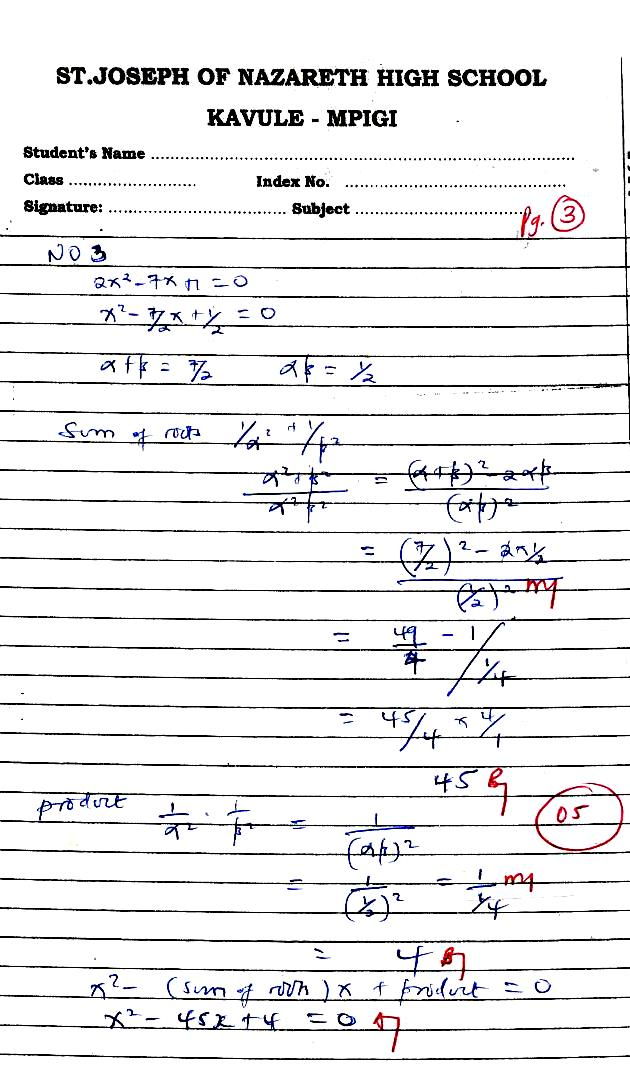 ST.JOSEPH OF NAZARETH HIGH SCHOOL
KAVULE - MPIGI
Student's Name ..................................................................................
Class .......................... Index No. ............................................
Signature: .................................... Subject ..................................
Pg. 3
NO 3
2x² - 7x + 1 = 0
x² - 7/2 x + 1/2 = 0
α+β = 7/2 αβ = 1/2
Sum of roots 1/α² + 1/β²
(α² + β²)/(α²β²) = ((α+β)² - 2αβ)/(αβ)²
= ((7/2)² - 2x1/2)/(1/2)² M1
= 49/4 - 1 / 1/4
= 45/4 x 4/1
45 B1
05
product 1/α² · 1/β² = 1/(αβ)²
= 1/(1/2)² = 1/(1/4) M1
= 4 B1
x² - (sum of roots)x + product = 0
x² - 45x + 4 = 0 A1